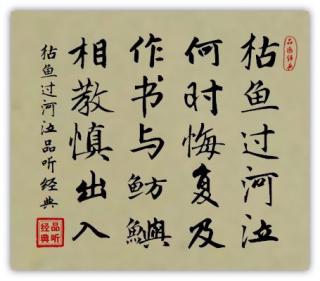 枯鱼过河泣
何时悔复及
作书与鲂鱮
相教慎出入
枯鱼过河泣品听经典
品听经典